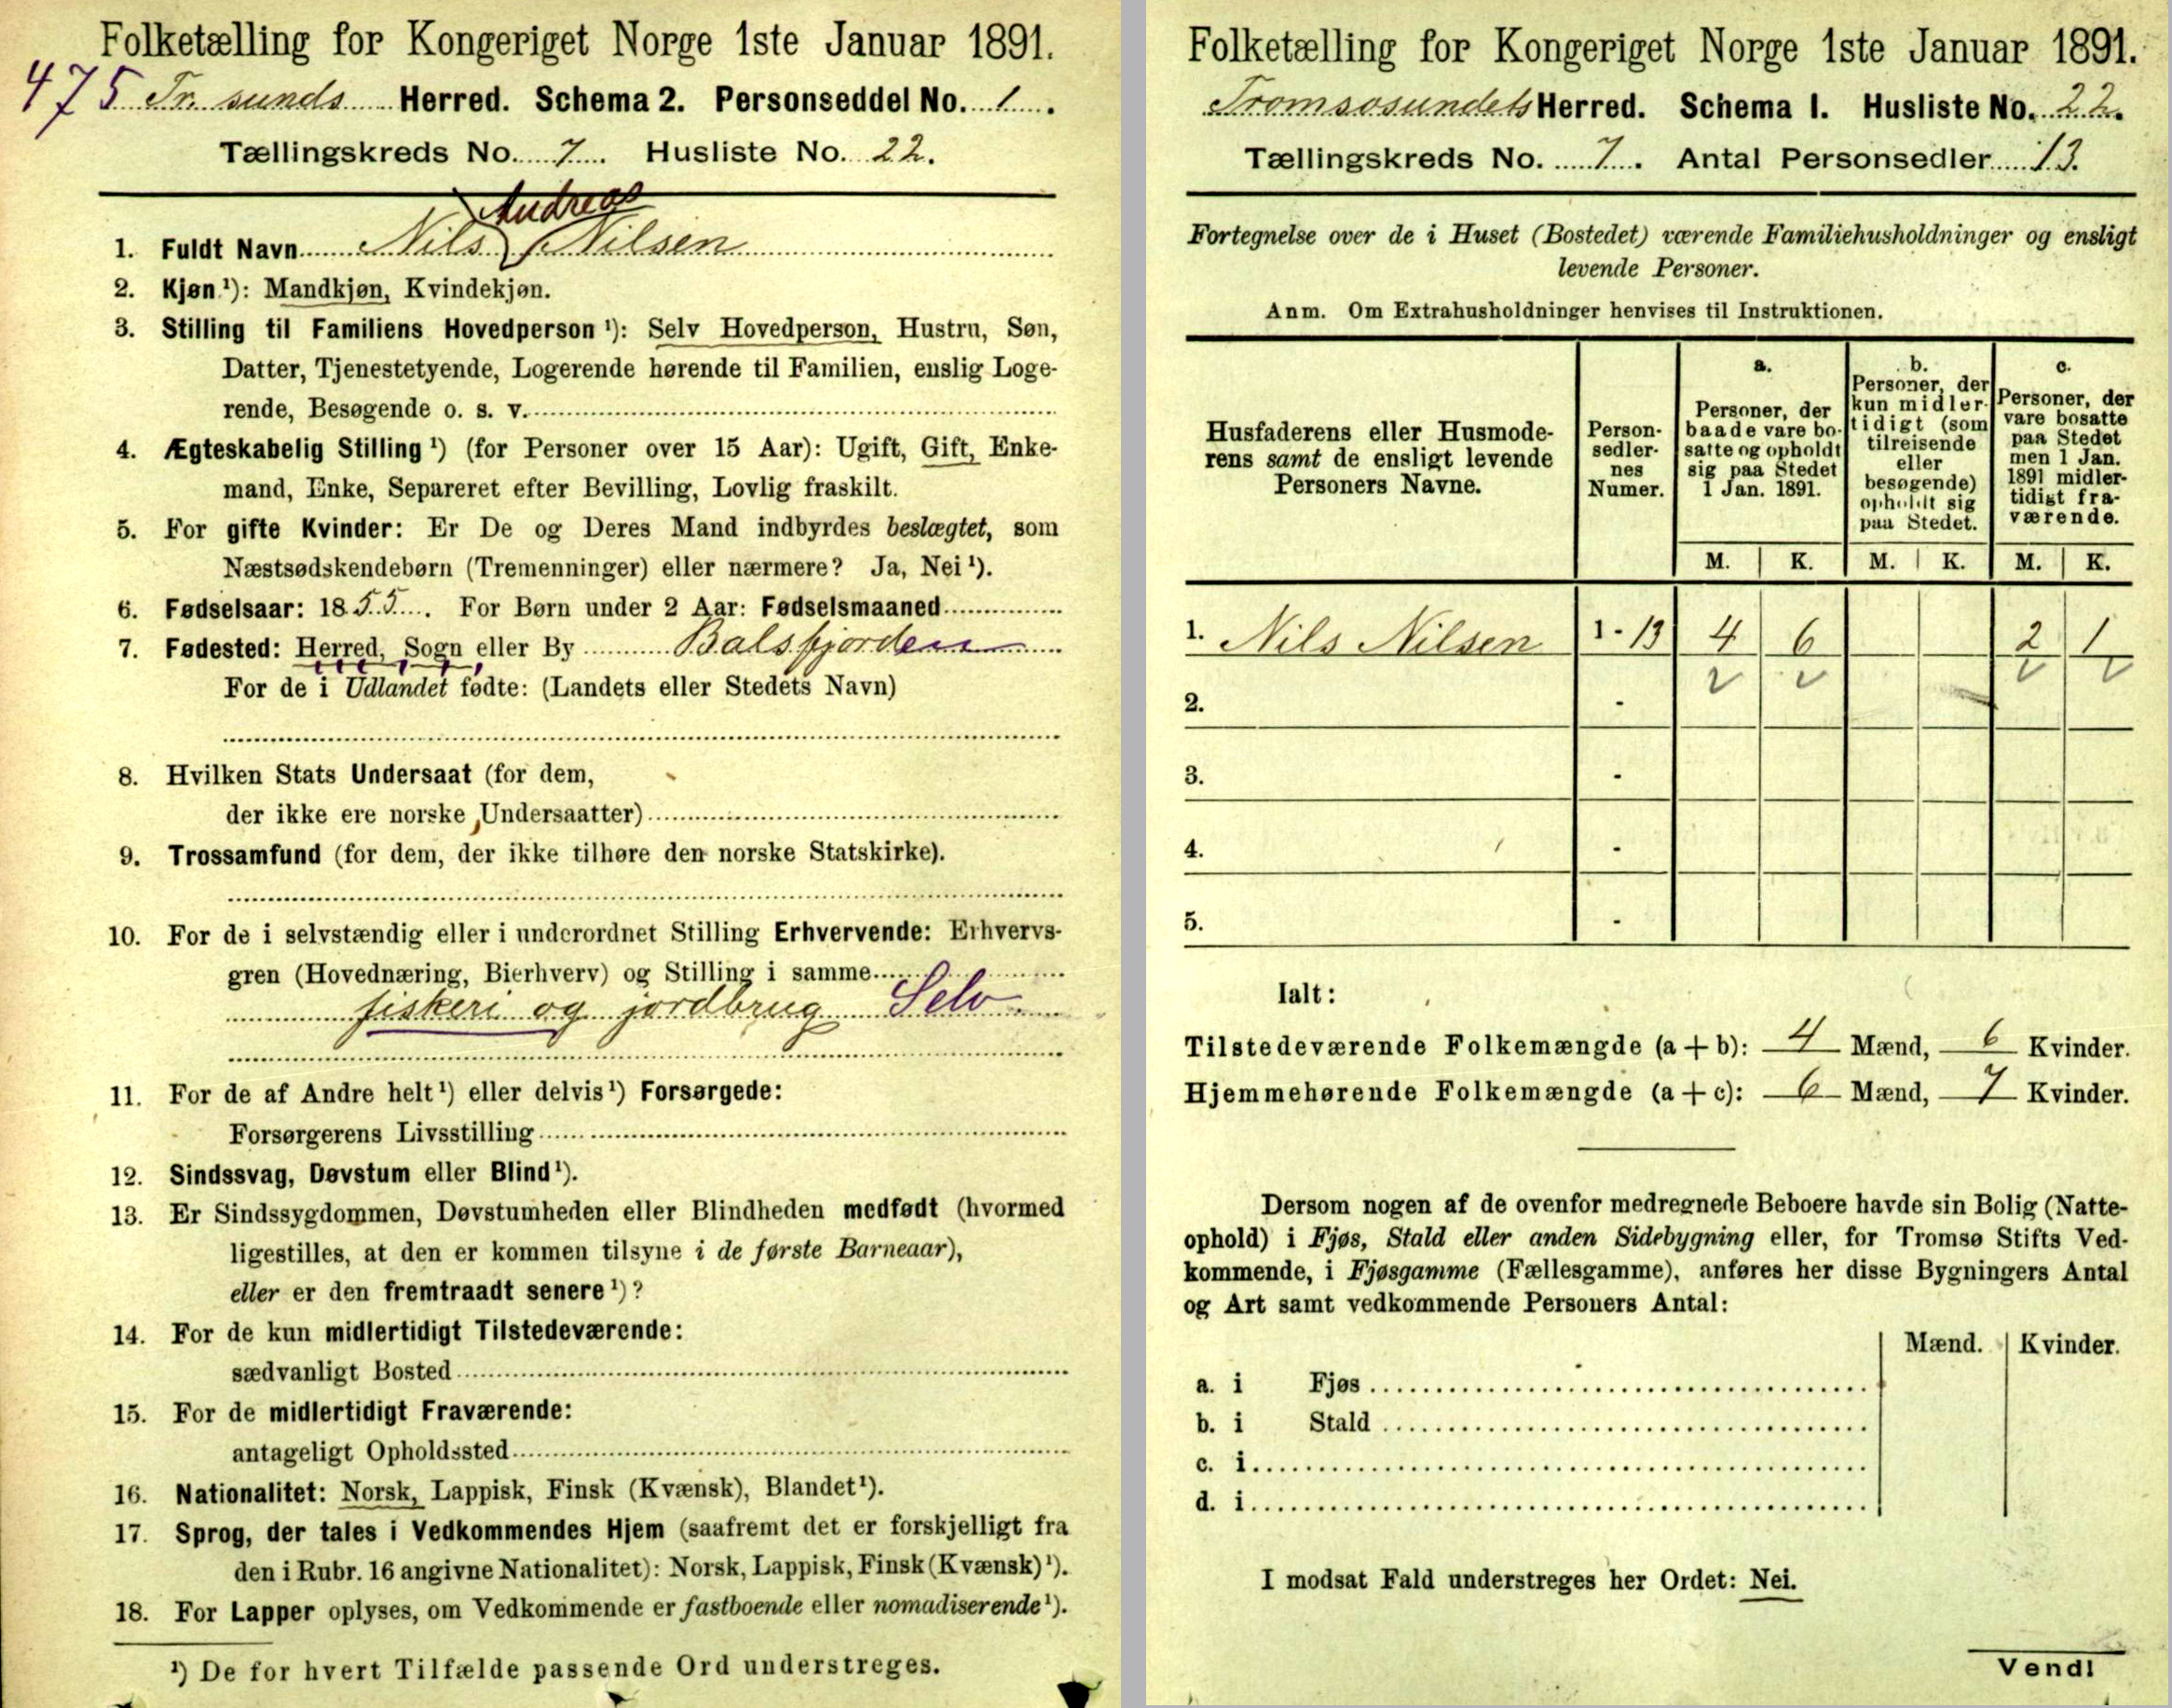 Folketælling for Kongeriget Norge 1ste Januar 1891.
475 Tr. sunds Herred. Schema 2. Personseddel No. 1.
Tællingskreds No. 7. Husliste No. 22.
Andreas
1. Fuldt Navn Nils Nilsen
2. Kjøn ¹): Mandkjøn, Kvindekjøn.
3. Stilling til Familiens Hovedperson ¹): Selv Hovedperson, Hustru, Søn,
Datter, Tjenestetyende, Logerende hørende til Familien, enslig Loge-
rende, Besøgende o. s. v.
4. Ægteskabelig Stilling ¹) (for Personer over 15 Aar): Ugift, Gift, Enke-
mand, Enke, Separeret efter Bevilling, Lovlig fraskilt.
5. For gifte Kvinder: Er De og Deres Mand indbyrdes beslægtet, som
Næstsødskendebørn (Tremenninger) eller nærmere? Ja, Nei ¹).
6. Fødselsaar: 1855. For Børn under 2 Aar: Fødselsmaaned
7. Fødested: Herred, Sogn eller By Balsfjorden
For de i Udlandet fødte: (Landets eller Stedets Navn)
8. Hvilken Stats Undersaat (for dem,
der ikke ere norske Undersaatter)
9. Trossamfund (for dem, der ikke tilhøre den norske Statskirke).
10. For de i selvstændig eller i underordnet Stilling Erhvervende: Erhvervs-
gren (Hovednæring, Bierhverv) og Stilling i samme
fiskeri og jordbrug Selv
11. For de af Andre helt ¹) eller delvis ¹) Forsørgede:
Forsørgerens Livsstilling
12. Sindssvag, Døvstum eller Blind ¹).
13. Er Sindssygdommen, Døvstumheden eller Blindheden medfødt (hvormed
ligestilles, at den er kommen tilsyne i de første Barneaar),
eller er den fremtraadt senere ¹)?
14. For de kun midlertidigt Tilstedeværende:
sædvanligt Bosted
15. For de midlertidigt Fraværende:
antageligt Opholdssted
16. Nationalitet: Norsk, Lappisk, Finsk (Kvænsk), Blandet ¹).
17. Sprog, der tales i Vedkommendes Hjem (saafremt det er forskjelligt fra
den i Rubr. 16 angivne Nationalitet): Norsk, Lappisk, Finsk (Kvænsk) ¹).
18. For Lapper oplyses, om Vedkommende er fastboende eller nomadiserende ¹).
¹) De for hvert Tilfælde passende Ord understreges.
Folketælling for Kongeriget Norge 1ste Januar 1891.
Tromsosundets Herred. Schema 1. Husliste No. 22.
Tællingskreds No. 7. Antal Personsedler 13.
Fortegnelse over de i Huset (Bostedet) værende Familiehusholdninger og ensligt
levende Personer.
Anm. Om Extrahusholdninger henvises til Instruktionen.
Husfaderens eller Husmode-
rens samt de ensligt levende
Personers Navne.
Person-
sedler-
nes
Numer.
a.
Personer, der
baade vare bo-
satte og opholdt
sig paa Stedet
1 Jan. 1891.
b.
Personer, der
kun midler-
tidigt (som
tilreisende
eller
besøgende)
opholdt sig
paa Stedet.
c.
Personer, der
vare bosatte
paa Stedet
men 1 Jan.
1891 midler-
tidigt fra-
værende.
M. K. M. K. M. K.
1. Nils Nilsen 1 - 13 4 6 2 1
2. -
3. -
4. -
5. -
Ialt:
Tilstedeværende Folkemængde (a + b): 4 Mænd, 6 Kvinder.
Hjemmehørende Folkemængde (a + c): 6 Mænd, 7 Kvinder.
Dersom nogen af de ovenfor medregnede Beboere havde sin Bolig (Natte-
ophold) i Fjøs, Stald eller anden Sidebygning eller, for Tromsø Stifts Ved-
kommende, i Fjøsgamme (Fællesgamme), anføres her disse Bygningers Antal
og Art samt vedkommende Personers Antal:
Mænd. Kvinder.
a. i Fjøs
b. i Stald
c. i
d. i
I modsat Fald understreges her Ordet: Nei.
Vend!